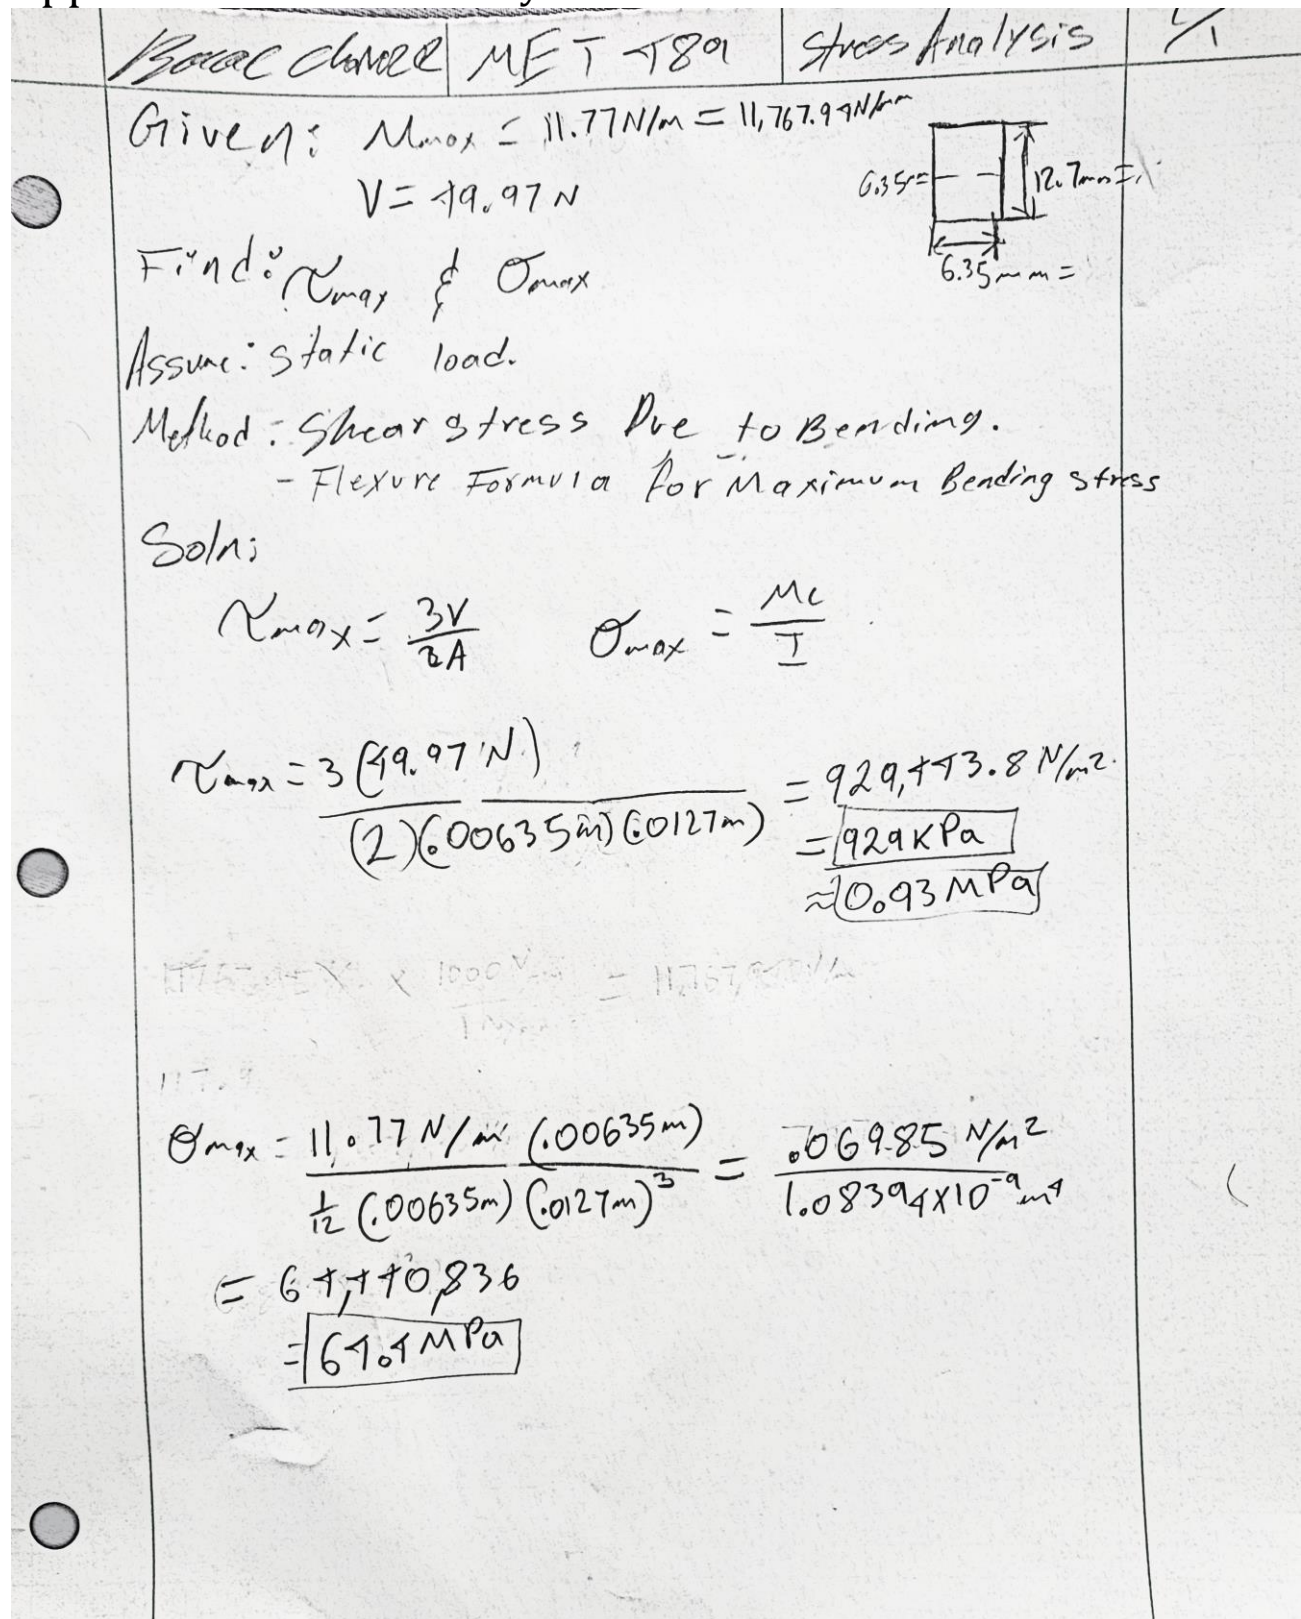 MET 489 | Stress Analysis | 1/1
Given: Mmax = 11.77N/m = 11,767.94N/mm
V = 49.97 N
6.35= 12.7mm=
6.35mm=
Find: τmax & σmax
Assume: static load.
Method: Shear stress Due to Bending.
- Flexure Formula for Maximum Bending stress
Soln:
τmax = 3V/2A σmax = Mc/I
τmax = 3(49.97 N)/(2)(.00635m)(.0127m) = 929,443.8 N/m²
= 929KPa
≈ 0.93 MPa
σmax = 11.77 N/m (.00635m)/1/12 (.00635m)(.0127m)³ = .06985 N/m²/1.08394x10⁻⁹m⁴
= 64,440,836
= 64.4MPa